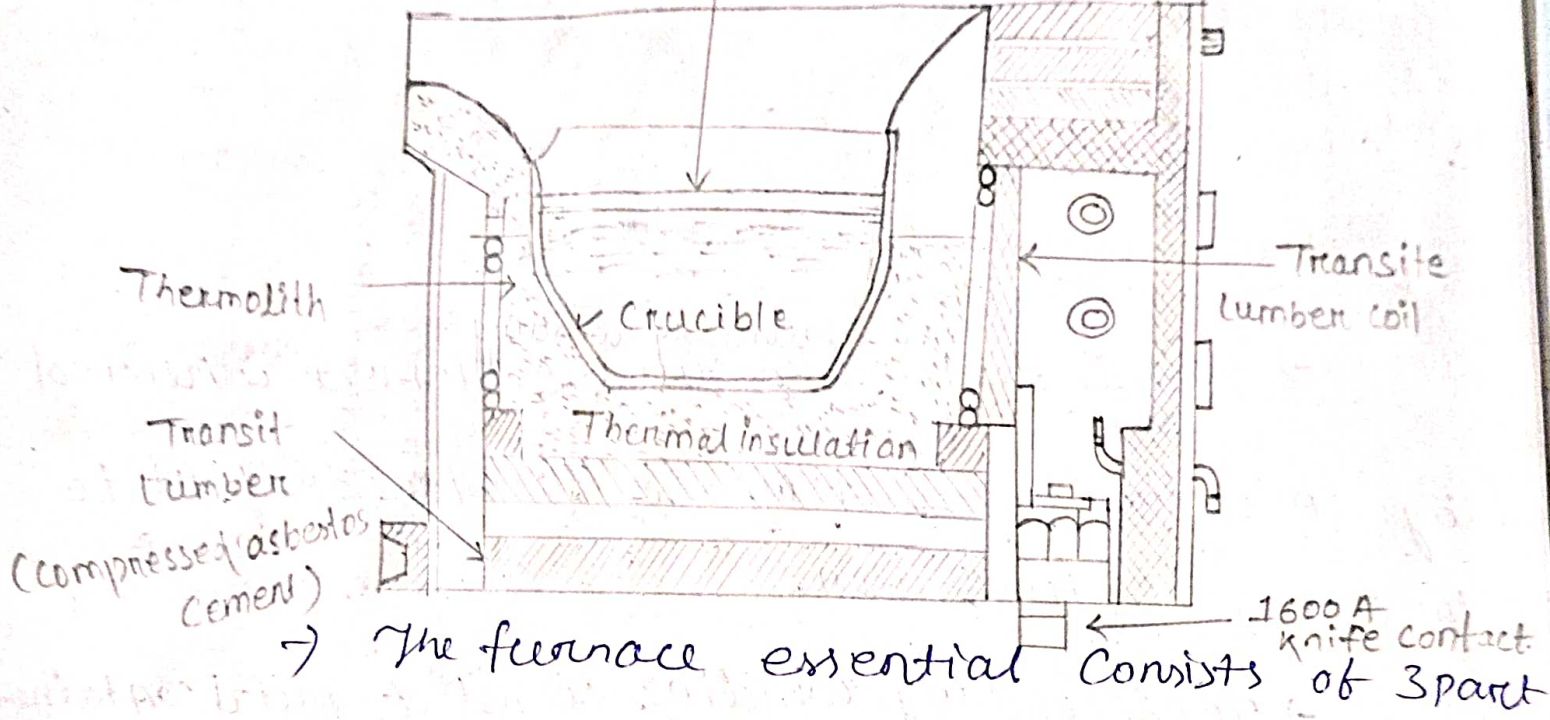 Thermolith
Crucible
Transite
lumber coil
Transit
lumber
(compressed asbestos
cement)
Thermal insulation
1600 A
knife contact.
→ The furnace essential consists of 3 part